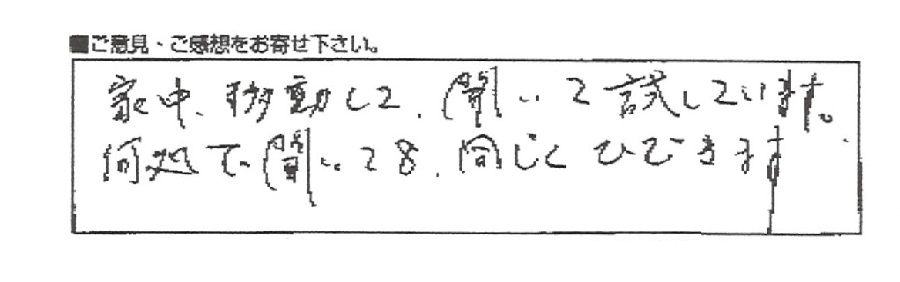 ■ご意見・ご感想をお寄せ下さい。
家中、移動して、聞いて試しています。
何処で聞いても、同じくひびきます